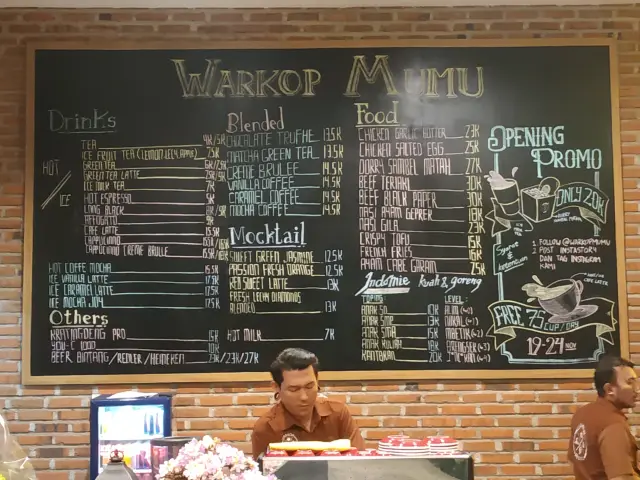 WARKOP MUMU
Drinks
HOT
ICE
TEA
ICE FRUIT TEA (LEMON, LECI, APPLE)
GREEN TEA
GREEN TEA LATTE
ICE MILK TEA 7K
HOT ESPRESSO 5K
LONG BLACK
AFFOGATO
CAFE LATTE
CAPPUCCINO
CAPPUCCINO CREME BRULLE
HOT COFFE MOCHA 15.5K
ICE VANILLA LATTE 17.5K
ICE CARAMEL LATTE 17.5K
ICE MOCHA 17.5K
Others
KRATINGDENG PRO
YOU-C 1000 10K
BEER BINTANG / REDLER / HEINEKEN 23K/23K/27K
Blended
CHOCOLATE TRUFHE 13.5K
MATCHA GREEN TEA 13.5K
CREME BRULEE 14.5K
VANILLA COFFEE 14.5K
CARAMEL COFFEE 14.5K
MOCHA COFFEE 14.5K
Mocktail
SWEET GREEN JASMINE 12.5K
PASSION FRESH ORANGE 12.5K
RED SWEET LATTE 13K
FRESH LECHI DIAMONDS
BLENDED 13K
HOT MILK 7K
Food
CHICKEN GARLIC BUTTER 23K
CHICKEN SALTED EGG 25K
DORRY SAMBEL MATAH 27K
BEEF TERIAKI 30K
BEEF BLACK PAPER 30K
NASI AYAM GEPREK 18K
NASI GILA 23K
CRISPY TOFU 15K
FRENCH FRIES 16K
AYAM CABE GARAM 25K
Indomie kuah & goreng
TOPING :
LEVEL :
ANAK SD
ANAK SMP
ANAK SMA
ANAK KULIAH 18K
KANTORAN 20K
OPENING
PROMO
ONLY 20K
Syarat &
ketentuan
1 FOLLOW @WARKOPMUMU
2 POST INSTASTORY
DAN TAG INSTAGRAM
KAMI
CAFE LATTE
FREE 75 CUP/DAY
19-24 NOV